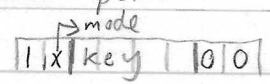 mode
1 x key 0 0